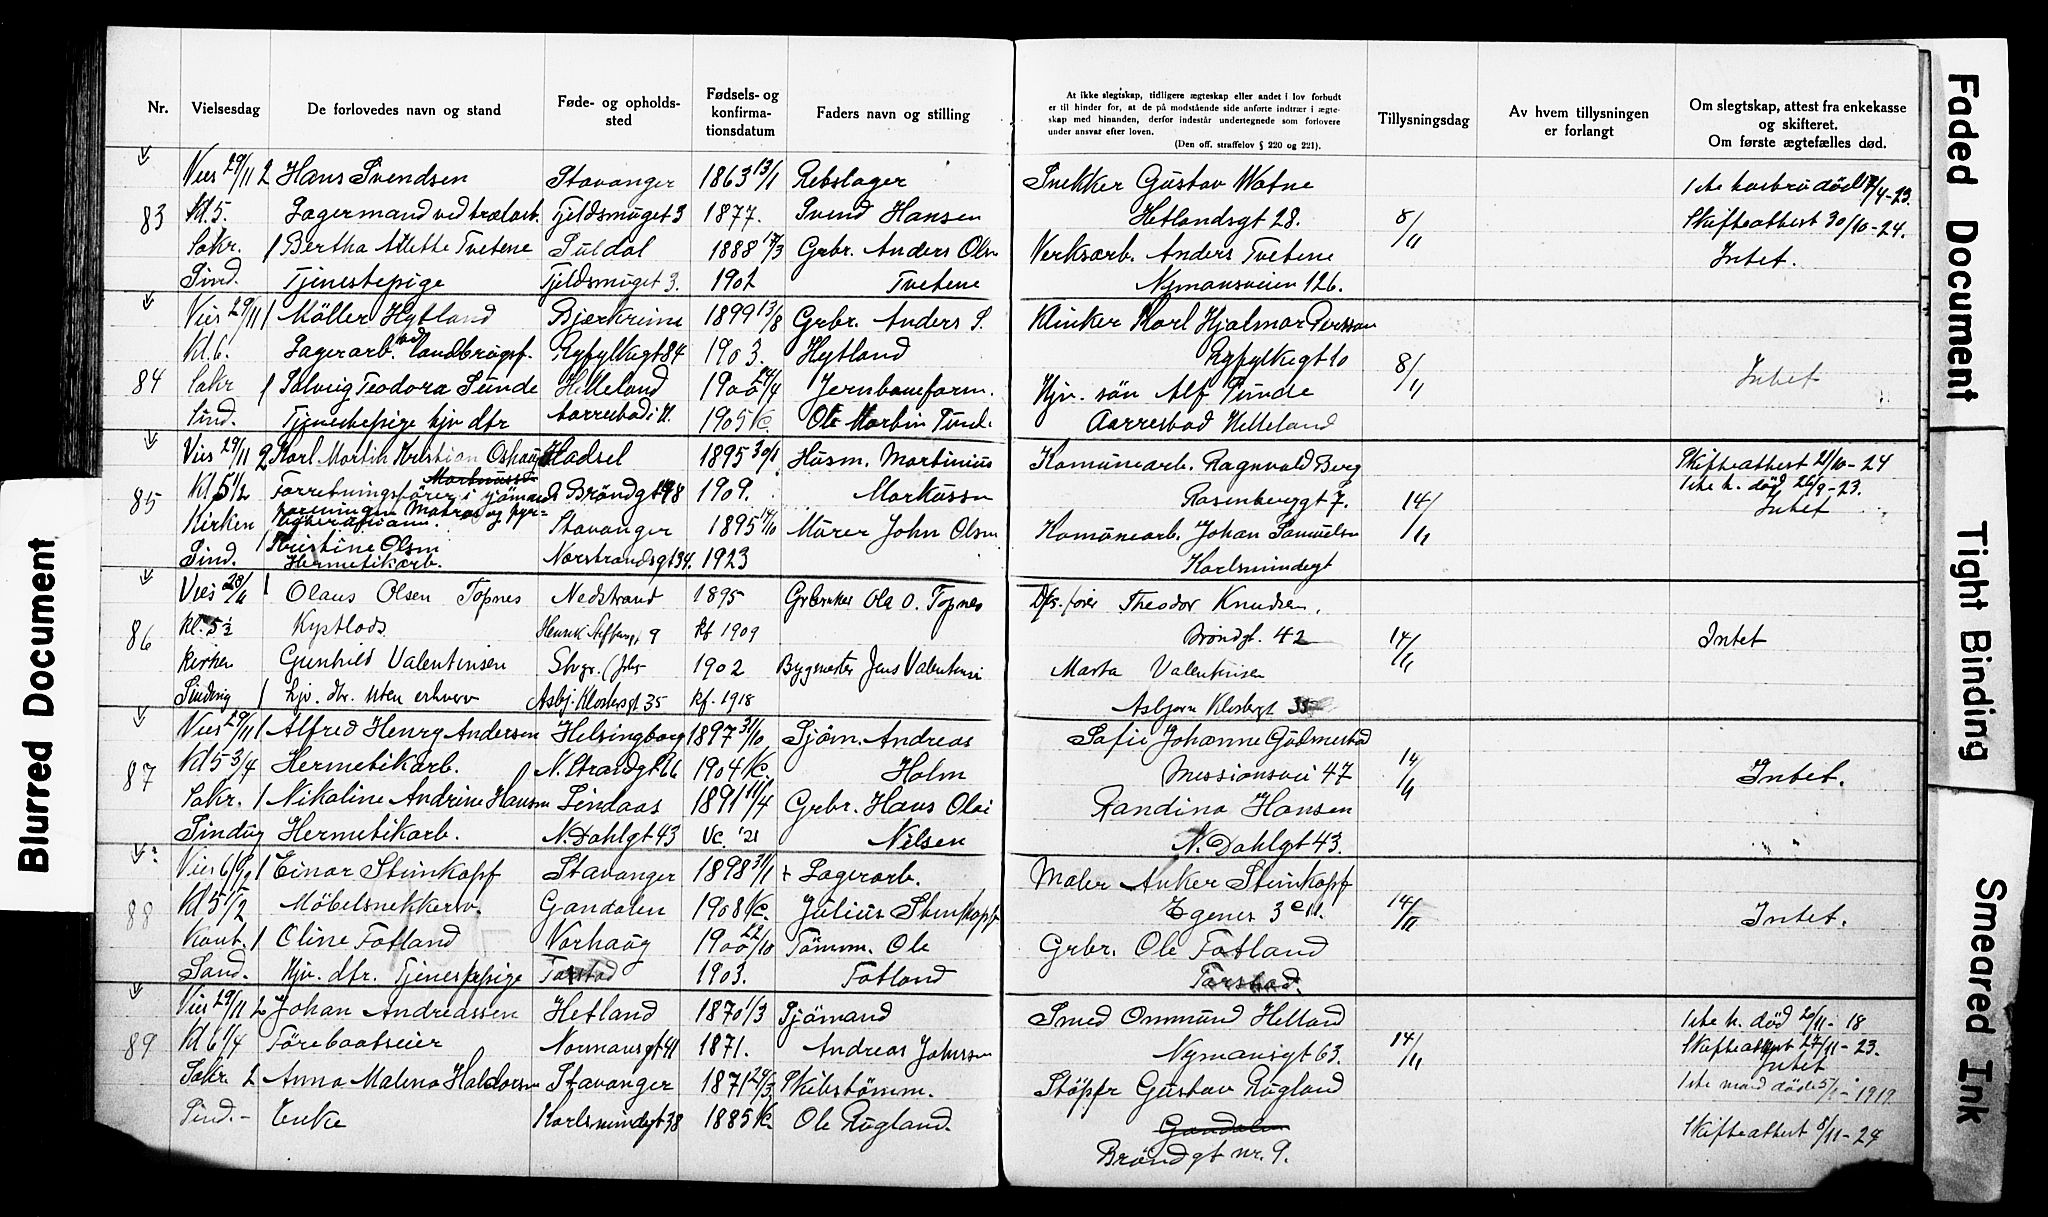 Nr.
Vielsesdag
De forlovedes navn og stand
Føde- og opholds-
sted
Fødsels- og
konfirma-
tionsdatum
Faders navn og stilling
At ikke slegtskap, tidligere ægteskap eller andet i lov forbudt
er til hinder for, at de på modstående side anførte indtrær i ægte-
skap med hinanden, derfor indestår undertegnede som forlovere
under ansvar efter loven.
(Den off. straffelov § 220 og 221).
Tillysningsdag
Av hvem tillysningen
er forlangt
Om slegtskap, attest fra enkekasse
og skifteret.
Om første ægtefælles død.
Vies 29/11 2 Hans Svendsen Stavanger 1863 13/1 Rebslager Snekker Gustav Watne 1ste hustru død 7/4-23.
83 Kl. 5. Lagermand ved trælast. Fjeldsmuget 3 1877. Svend Hansen Hetlandsgt 28. 8/11 Skifteattest 30/10-24.
Sakr. 1 Bertha Alette Tvetene Suldal 1888 17/3 Grbr. Anders Olsn Verksarb. Anders Tvetene Intet.
Sind. Tjenestepige Fjeldsmuget 3. 1902 Tvetene Nymansveien 126.
Vies 29/11 1 Möller Hytland Bjerkreim 1899 13/8 Grbr. Anders S. Klinker Karl Hjalmar Persson
Kl. 6. Lagerarb. ved landbrugsf. Ryfylkegt 84 1903. Hytland Ryfylkegt 10
84 Sakr 1 Solveig Teodora Sunde Helleland 1900 24/4 Jernbaneform. Hjv. sön Alf Sunde 8/11 Intet
Sind. Tjenestepige hjv dtr Aarrestad i H. 1905 K. Ole Martin Sund. Aarrestad Helleland
Vies 29/11 2 Karl Martin Kristian Oshaug Hadsel 1895 30/1 Husm. Martinius Komunearb. Ragnvald Berg Skifteattest 21/10-24
Martinussen
85 Kl 5 1/2 Forretningsfører i sjömands Bröndgt 198 1909. Markussn Rosenberggt 7. 14/11 1ste h. död 26/9-23.
foreningen Matros og fyr- Intet
Kirken Stavanger 1895 14/10 Murer John Olsn Komunearb. Johan Samuelsn
Sind. 1 Kristine Olsen Norstrandsgt 34. 1923 Karlsmindegt
Hermetikarb.
Vies 28/11 1 Olaus Olsen Topnes Nedstrand 1895 Grbruker Ola O. Topnes Theodor Knudsen.
86 kl. 5 1/2 Kystlods 9 kf 1909 Bröndgt. 42 14/11 Intet
Kirken Gunhild Valentinsen 1902 Bygmester Jens Valentinsen Marta Valentinsen
Sinding 1 hjv. dtr. uten erhverv Asbj. Klostersgt 35 kf. 1918 Asbjørn Klostergt 35
Vies 29/11 1 Alfred Henry Andersen Helsingborg 1897 31/10 Sjöm. Andreas Sofie Johanne Gudmestad
87 Kl 5 3/4 Hermetikarb. N. Strandgt 66 1904 K. Holm Missionsvei 47 14/11 Intet.
Sakr. 1 Nikoline Andrine Hansen Lindaas 1891 11/4 Grbr. Hans Olai Randina Hansen
Sinding Hermetikarb. N. Dahlgt 43 Vc. '21 Nilsen N. Dahlgt 43.
Vies 6/12 1 Einar Steinkopf Stavanger 1898 31/1 + Lagerarb. Maler Anker Steinkopf
88 Kl 5 1/2 Möbelsnekkersv. Gandalen 1908 K. Julius Steinkopf Egenes 3 14/11 Intet.
Kont. 1 Oline Fotland Varhaug 1900 22/10 Tömm. Ole Grbr. Ole Fotland
Sand. Hjv. dtr. Tjenestepige Tarstad 1903. Fotland Tarstad.
Vies 29/11 2 Johan Andreassen Hetland 1870 1/3 Sjömand Smed Ommund Helland 1ste h. död 20/11-18
89 Kl 6 1/4 Förebaatseier Normansgt 41 1871. Andreas Johnsen Nymansgt 63. 14/11 Skifteattest 27/11-23.
Intet
Sakr. 2 Anna Malena Haldorsn Stavanger 1871 29/3 Skibstömm. Stöpfr Gustav Rugland 1ste mand döde 5/1-1919
Sind.- Enke Karlsmindegt 38 1885 K. Ole Rugland. Gandalen Skifteattest 5/11-24
Bröndgt nr. 9.
Faded Document
Tight Binding
Smeared Ink
Blurred Document